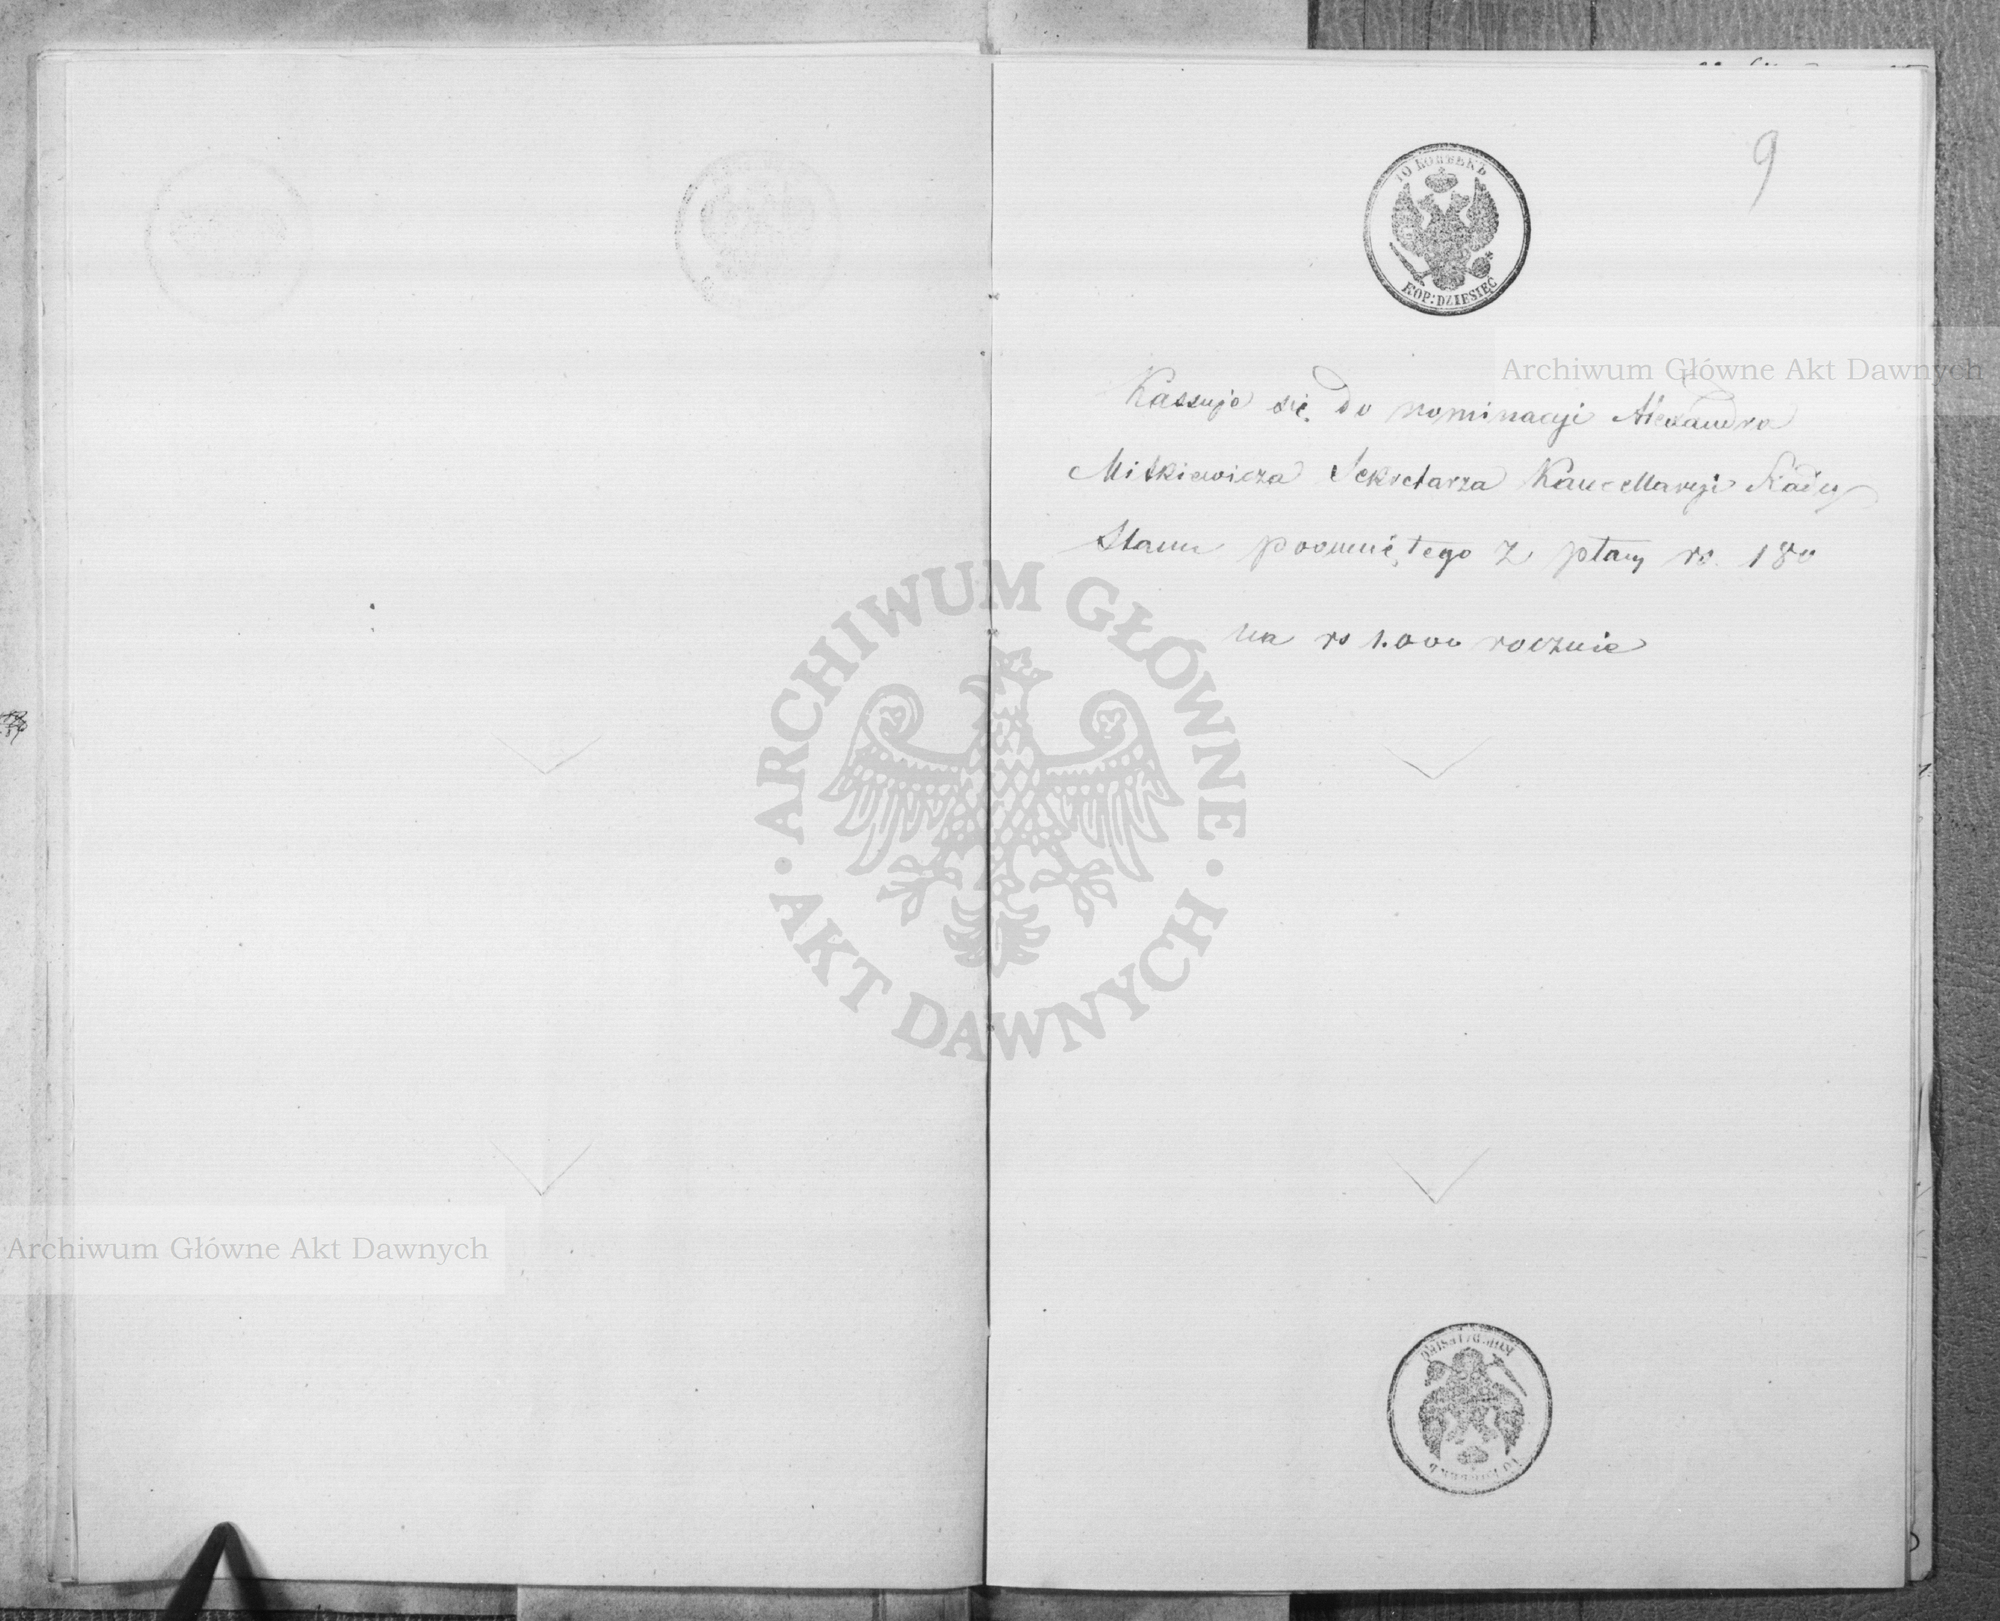 9
10 КОПѢЕКЪ
KOP: DZIESIĘĆ
Kassuje się do nominacyi Alexandra
Mitkiewicza Sekretarza Kancellaryi Rady
Stanu posuniętego z płacy rs.
na rs 1.000 rocznie
Archiwum Główne Akt Dawnych
ARCHIWUM GŁÓWNE
AKT DAWNYCH
Archiwum Główne Akt Dawnych
KOP: DZIESIĘĆ
10 КОПѢЕКЪ